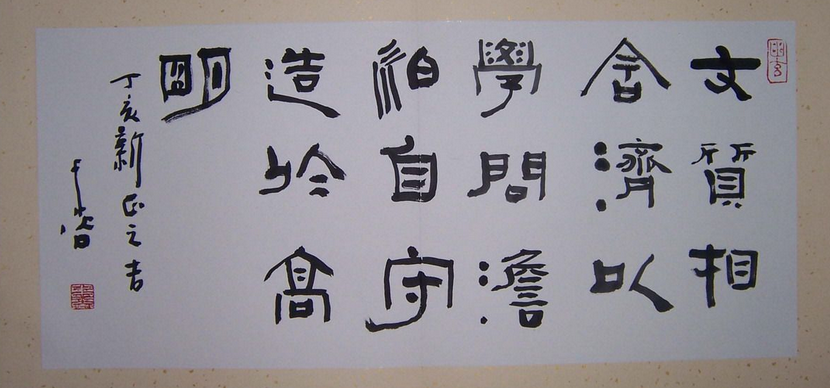 文質相
含濟以
學問澹
泊自守
造於高
明
丁亥新正之吉